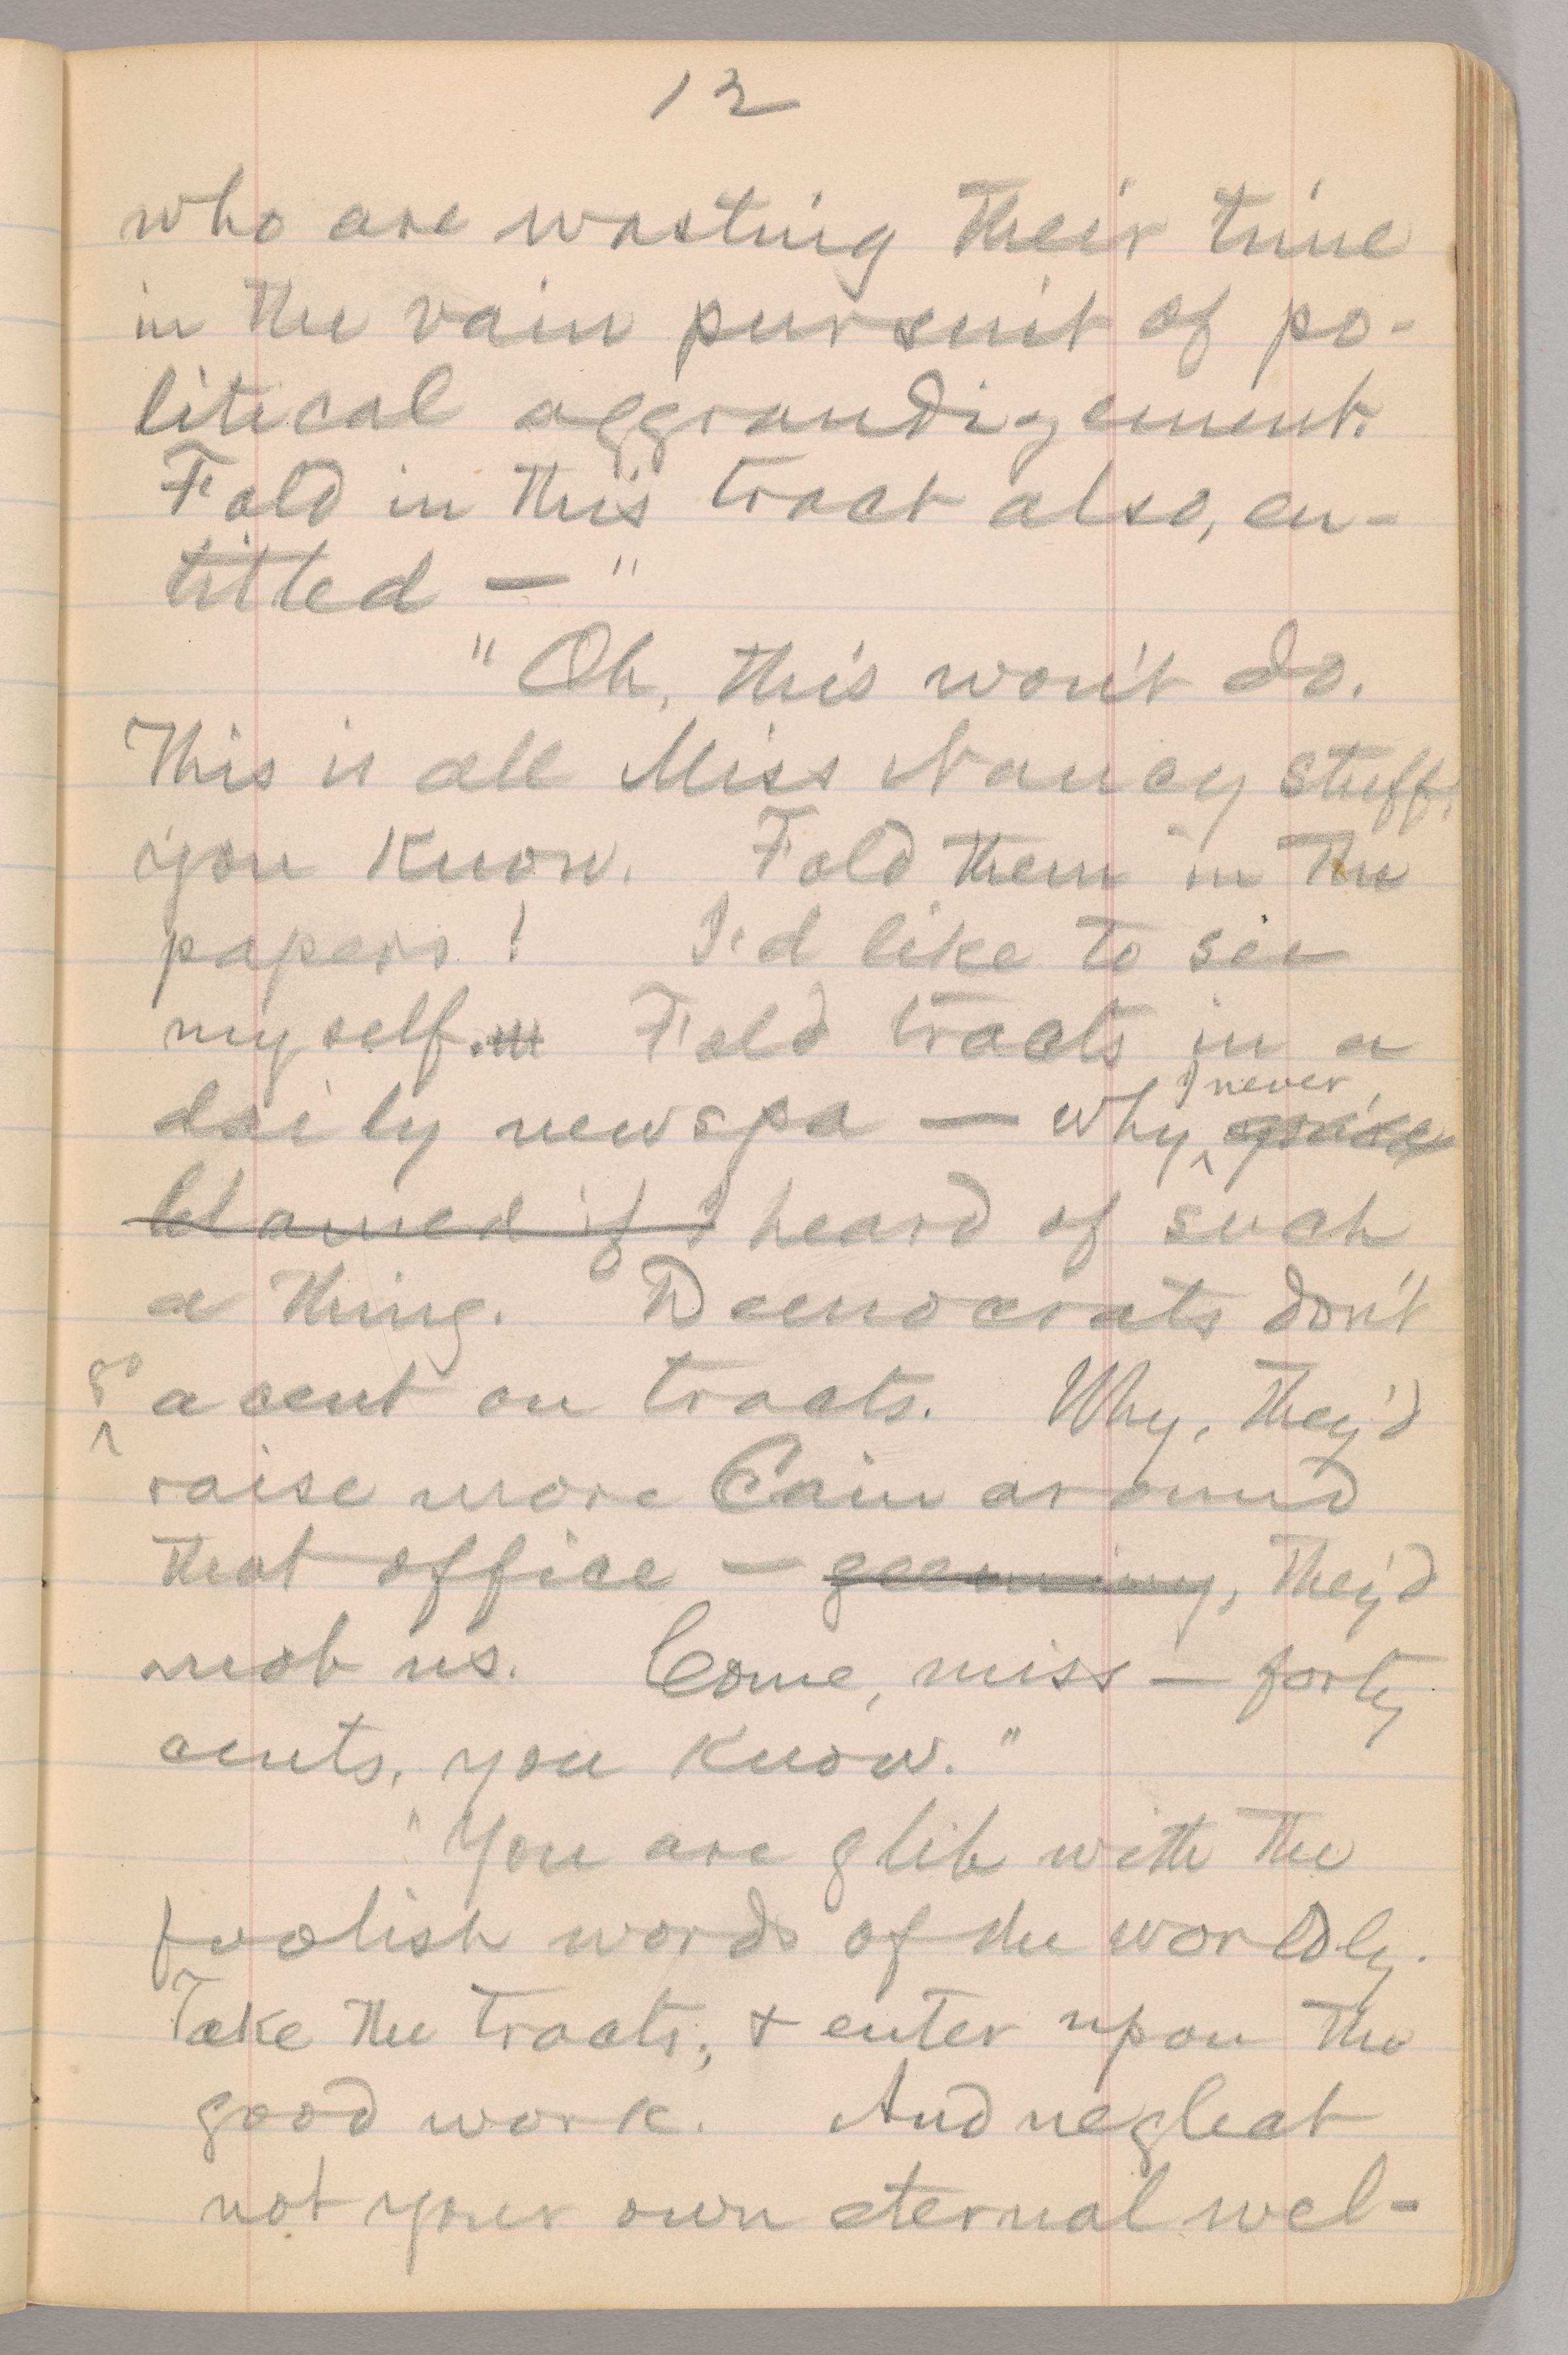 12
who are wasting their time
in the vain pursuit of po-
litical aggrandizement.
Fold in this tract also, en-
titled — "
"Oh, this won't do.
This is all Miss Nancy stuff,
you know. Fold them in the
papers! I'd like to see
myself. Fold tracts in a
daily newspa — why, I never
blamed if I heard of such
a thing. Democrats don't
go a cent on tracts. Why, they'd
raise more Cain around
that office — geeminy, they'd
mob us. Come, miss — forty
cents, you know."
"You are glib with the
foolish words of the worldly.
Take the tracts, & enter upon the
good work. And neglect
not your own eternal wel-